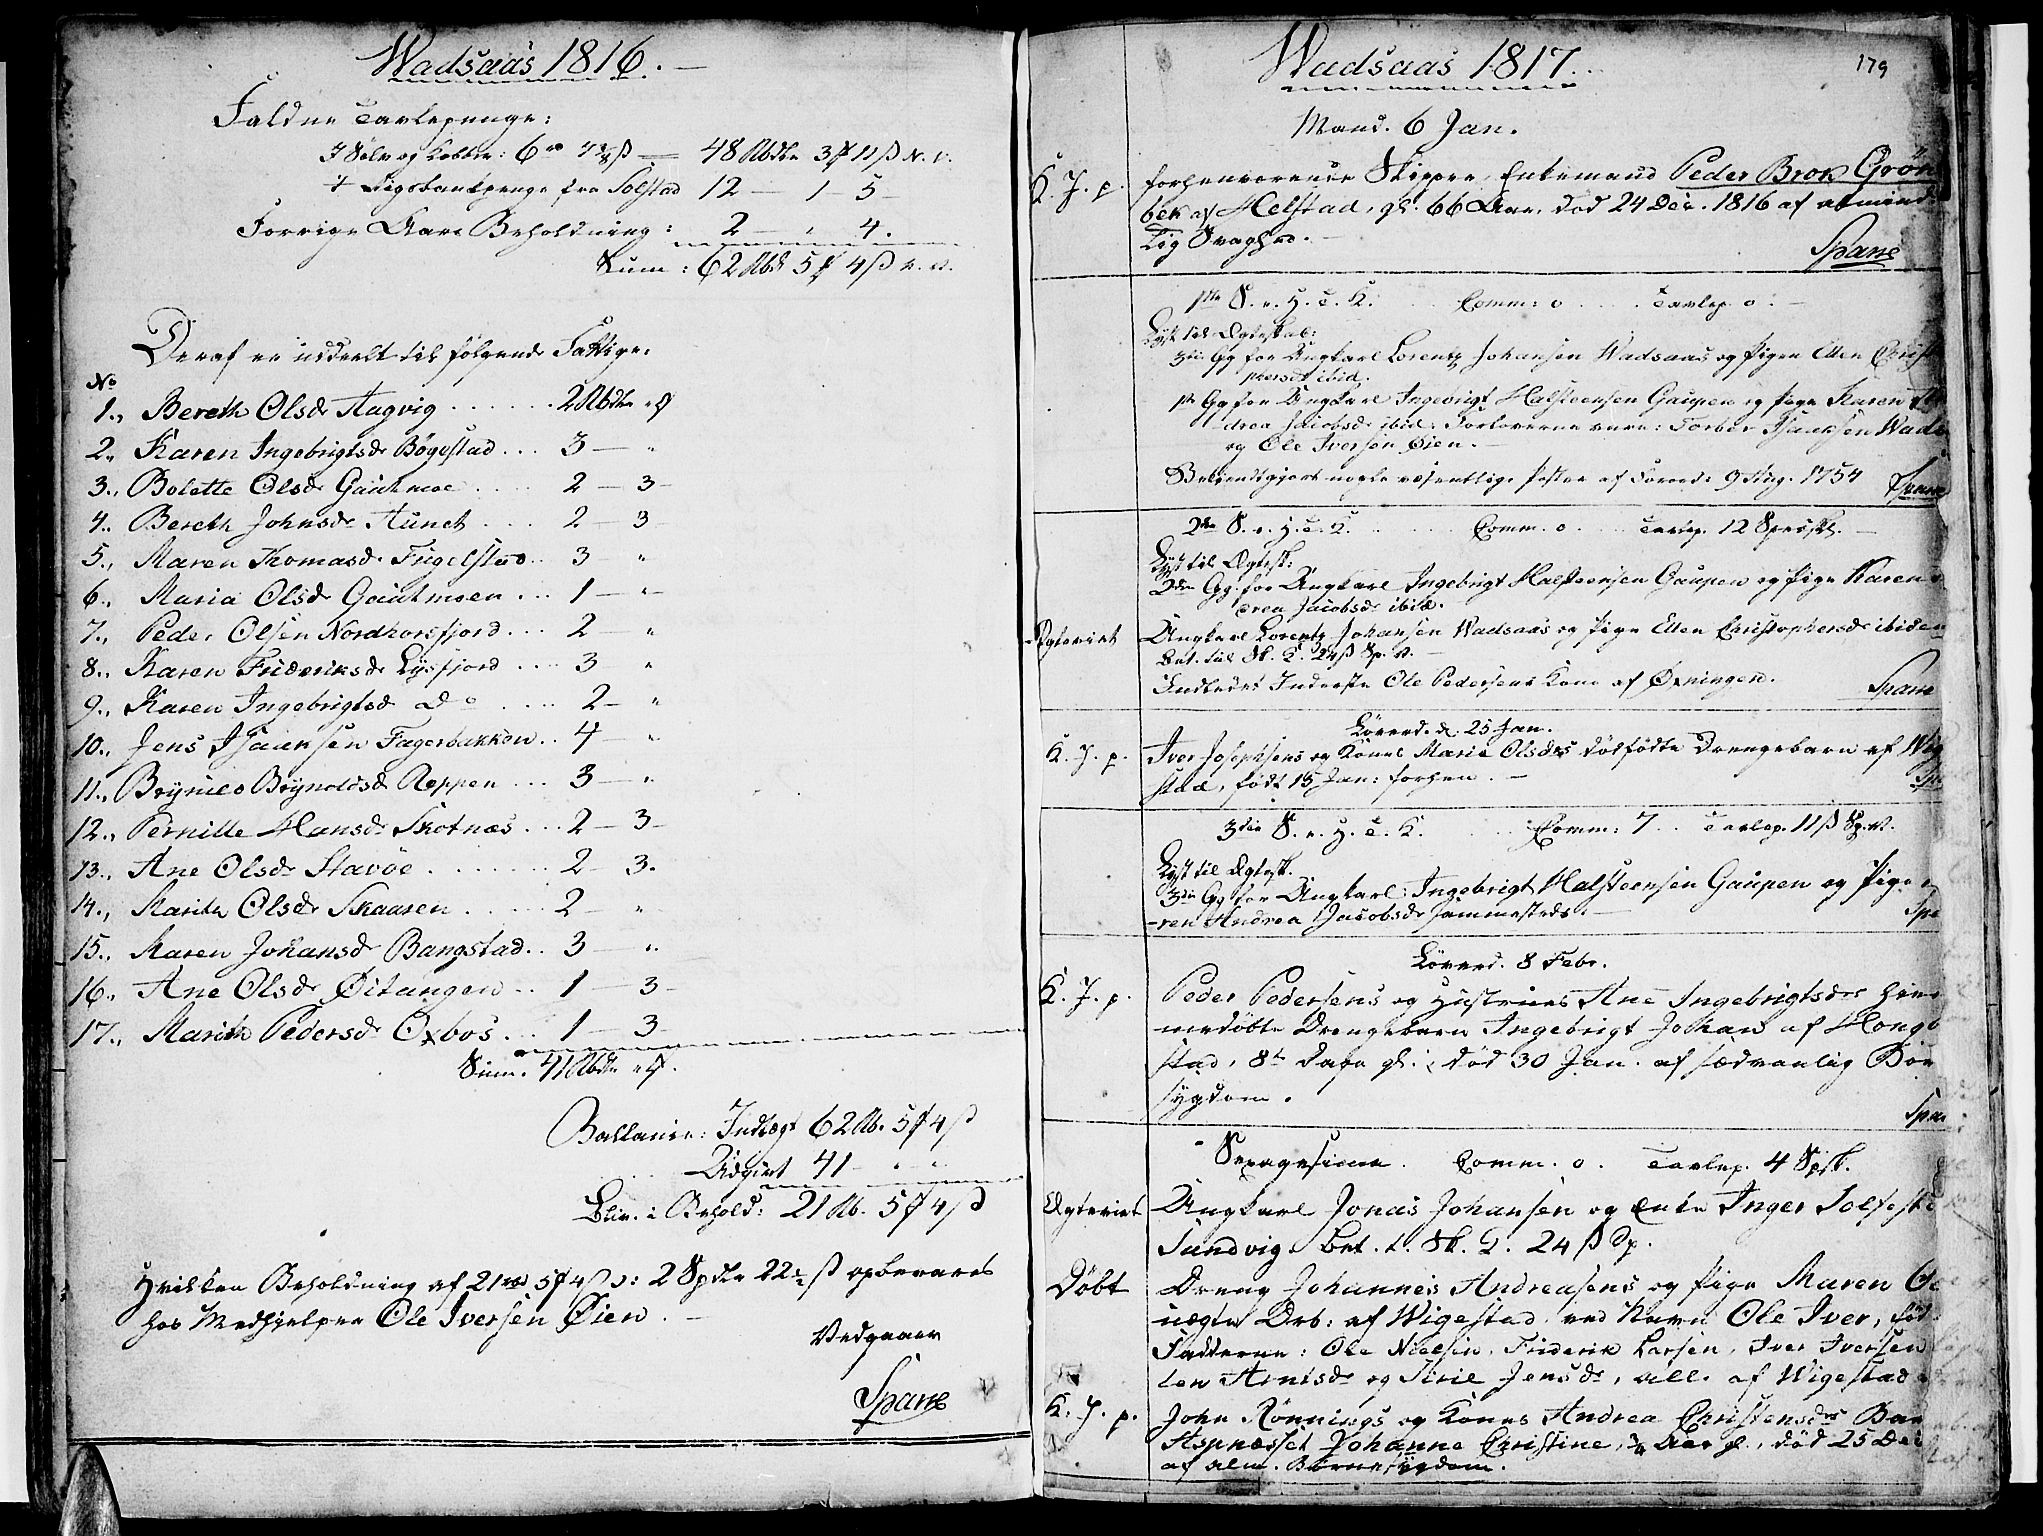 Wadsaas 1816.
Faldne Tavlepenge:
I Sølv og Kobber: 6 48 Rbdlr 3 11 ß N. V.
fra Solstad 12 — 1 — 5 —
Forrige Aars Beholdning: 2 — " 4.
Sum: 62 Rbd 5 4 ß N. V.
Deraf er uddeelt til følgende Fattige:
No
1., Bereth Olsd. Aagvig . . . . . . 2 Rbdlr "
2., Karen Ingebrigtsd. Bøgestad . . . 3 — "
3., Bolette Olsd. Gautmoe . . . . 2 — 3 —
4., Bereth Johnsd. Aunet . . . 2 — 3
5., Maren Thomasd. Fugelstad . . 3 — "
6., Maria Olsd. Gautmoen . . . 1 — "
7., Peder Olsen Nordhorsfjord . . . 2 — "
8., Karen Frideriksd. Lysfjord . . . . 3 — "
9., Karen Ingebrigtsd. do . . . . 2 — "
10., Jens Isaaksen Fagerbakken . . 4 — "
11., Brynild Brynoldsd. Reppen . . . 3 — "
12., Pernille Hansd. Skotnæs . . . 2 — 3 —
13., Ane Olsd. Stavøe . . . . . . . 2 — 3.
14., Marith Olsd. Skaaren . . . . . 2 — "
15., Maren Johansd. Bangstad . . 3 — "
16., Ane Olsd. Øitangen . . 1 — 3 —
17., Marith Pedersd. Oxbos . . . 1 — 3 —
Sum. 41 Rbdlr "
Ballance: Indtægt 62 Rb. 5 4 ß
Udgivt 41 — " — "
Bliv. i Behold: 21 Rb. 5 4 ß
Hvilken Beholdning af 21 5 4 ß : 2 Spdlr 22½ ß opbevares
hos Medhjelper Ole Iversen Øien. —
Vedgaaer
Sparre
Wadsaas 1817.
179
Mand. 6 Jan.
K. J. p. forhenværende Skipper, Enkemand Peder Brok Grøn
bek af Helstad, gl. 66 Aar, død 24 Dec. 1816 af almind
lig Svaghed. —
Sparre
1ste S. e. H. 3. K. Comm: 0 . . . . Tavlep. 0. —
Lyst til Ægteskab:
3die Gg for Ungkarl Lorentz Johansen Wadsaas og Pigen Ellen Christ
phersd. ibid.
1ste Gg for Ungkarl Ingebrigt Halsteensen Gaupen og Pige Karen An
drea Jacobsd. ibid. Forloverne vare: Isaaksen Wads
og Ole Iversen Øien. —
Bekiendtgjort nogle væsentlige Poster af Forord. 9 Aug. 1754 Sparre
2den S. e. H. 3. K. Comm. 0 . . . Tavlep. 12 —
Lyst til Ægtesk:
2den Gg. for Ungkarl Ingebrigt Halsteensen Gaupen og Pige Karen
drea Jacobsd. ibid.
Ægteviet Ungkarl Lorentz Johansen Wadsaas og Pige Ellen Christophersd. ibidem
Bet. til Sk. K. 24 ß Sp. V. —
Indledet Inderste Ole Pedersens Kone af Øxningen. Sparre
Løverd. d. 25 Jan.
K. J. p. Iver Josephsens og Kones Marie Olsdrs dødfødte Drengebarn af Wig
stad, født 15 Jan: forhen. —
Sp
3die S. e. H. 3. K. Comm: 7 . . Tavlep. 11 ß Sp. V.
Lyst til Ægtesk.
3die Gg for Ungkarl Ingebrigt Halsteensen Gaupen og Pige
-ren Andrea Jacobsd. sammesteds. — Spa
Løverd. 8 Febr.
K. J. p. Peder Pedersens og Hustrues Ane Ingebrigtsdrs hiem
medøbte Drengebarn Ingebrigt Johan af Hong
stad, 8te Dage gl., død 30 Jan. af sædvanlig Bør
sygdom.
Spar
Sexagesima. Comm. 0. Tavlep. 4 Spsk.
Ægteviet Ungkarl Jonas Johansen og Enke Inger
Sundvig. bet. t. Sk. K. 24 ß Sp.
Døbt Dreng Johannes Andreasens og Pige Maren
uægte Drb: af Wigestad ved Navn Ole Iver, fød
Fadderne: Ole Nielsen, Friderik Larsen, Iver Iversen
len Arntsd. og Siril Jensd., alle af Wigestad
K. J. p. John Rønnings og Kones Andrea Christensdrs Bar
Aspnæsset Johanne Christine, ¾ Aar gl., død 25 Dec
af alm. Børnesygdom.